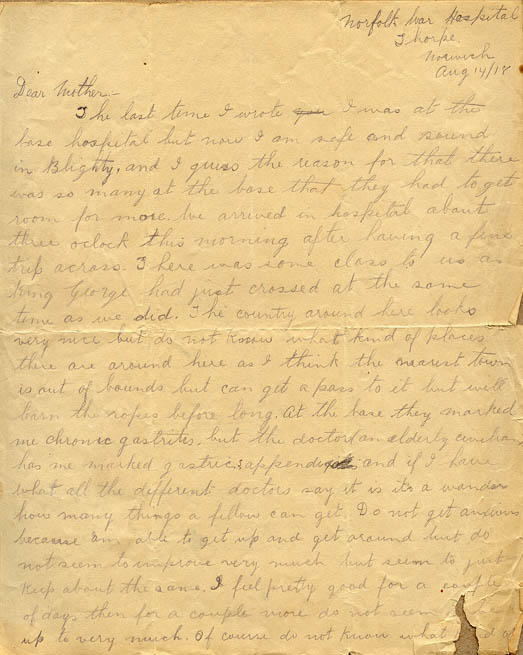 Norfolk War Hospital
Thorpe
Norwich
Aug 14/18
Dear Mother:-
The last time I wrote you I was at the
base hospital but now I am safe and sound
in Blighty, and I guess the reason for that there
was so many at the base that they had to get
room for more. We arrived in hospital about
three oclock this morning after having a fine
trip across. There was some class to us as
King George had just crossed at the same
time as we did. The country around here looks
very nice but do not know what kind of places
there are around here as I think the nearest town
is out of bounds but can get a pass to it but will
learn the ropes before long. At the base they marked
me chronic gastrites, but the doctor (an elderly civilian
has me marked gastric & and if I have
what all the different doctors say it is its a wonder
how many things a fellow can get. Do not get anxious
because am able to get up and get around but do
not seem to improve very much but seem to just
keep about the same. I feel pretty good for a couple
of days then for a couple more do not seem
up to very much. Of course do not know what